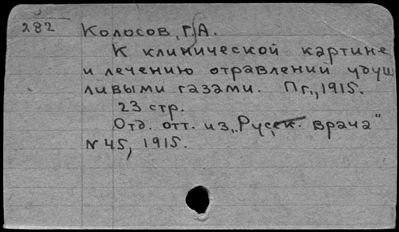 282
Колосов, Г.А.
К клинической картине
и лечению отравлений удуш
ливыми газами. Пг., 1915.
23 стр.
Отд. отт. из „Русск. врача"
N 45, 1915.